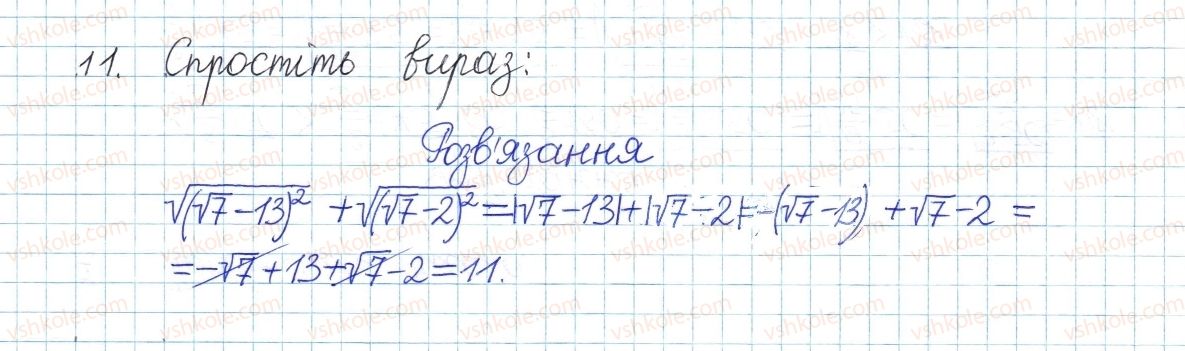 11. Спростіть вираз:
Розв'язання
√(√7-13)² + √(√7-2)² = |√7-13| + |√7-2| = -(√7-13) + √7-2 =
= -√7 + 13 + √7 - 2 = 11.